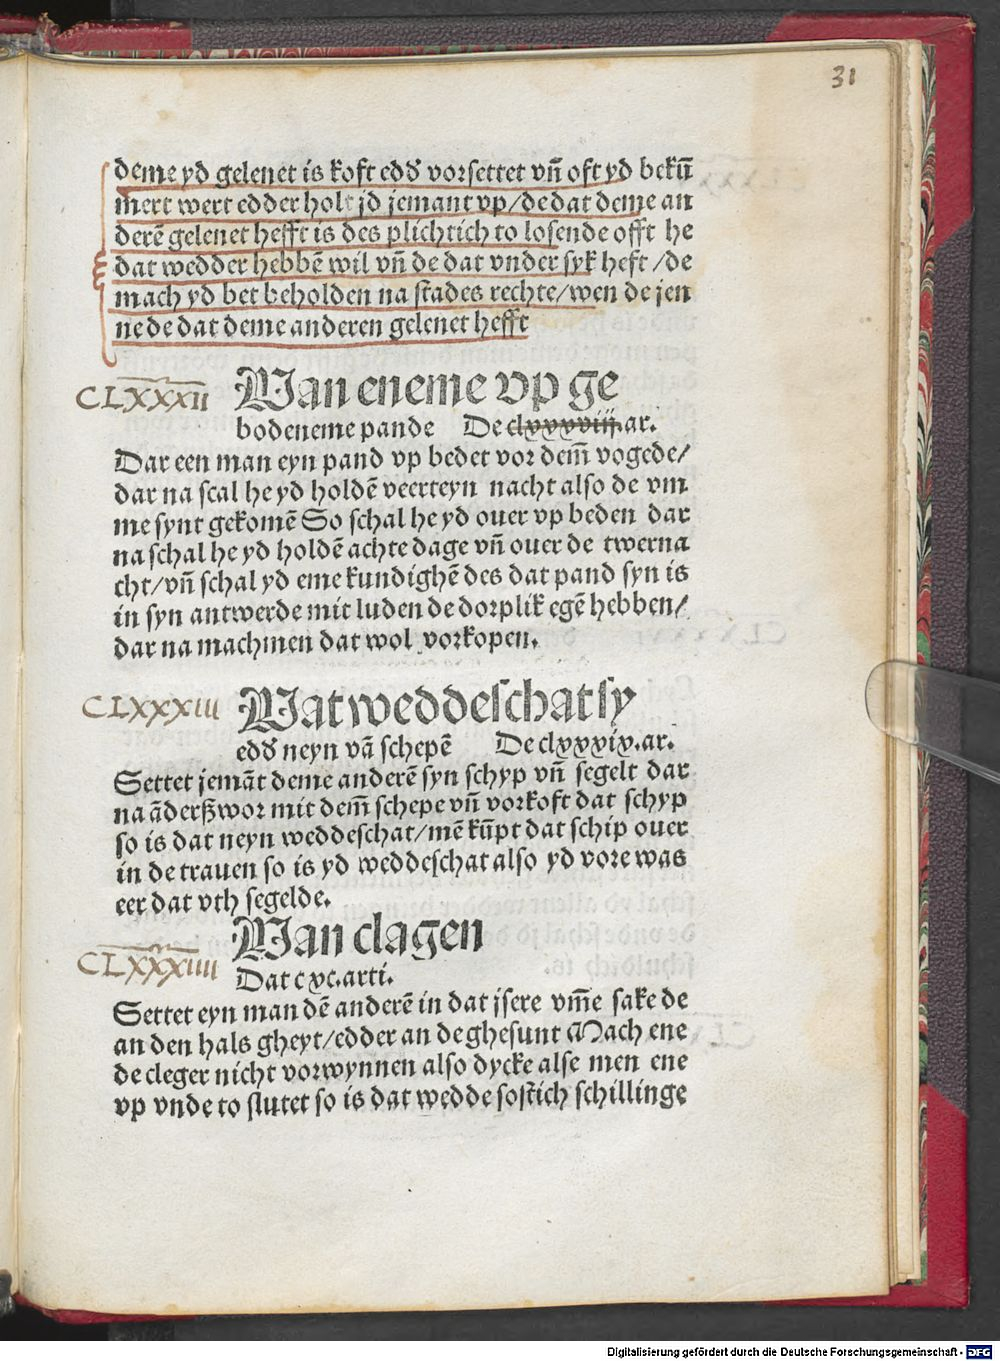 31
deme yd gelenet is koft edd̕ vorsettet vn̄ oft yd bekū
mert wert edder holt jd jemant vp/de dat deme an
derē gelenet hefft is des plichtich to losende offt he
dat wedder hebbē wil vn̄ de dat vnder syk heft /de
mach yd bet beholden na stades rechte/wen de jen
ne de dat deme anderen gelenet hefft
CLXXXII Van eneme vp ge
bodeneme pande De clxxxviij.ar.
Dar een man eyn pand vp bedet vor dem̄ vogede/
dar na scal he yd holdē veerteyn nacht also de vm
me synt gekomē So schal he yd ouer vp beden dar
na schal he yd holdē achte dage vn̄ ouer de twerna
cht/vn̄ schal yd eme kundighē des dat pand syn is
in syn antwerde mit luden de dorplik egē hebben/
dar na mach men dat wol vorkopen.
CLXXXIII Wat weddeschat sy
edd̕ neyn vā schepē De clxxxix.ar.
Settet jemāt deme anderē syn schyp vn̄ segelt dar
na āderßwor mit dem̄ schepe vn̄ vorkoft dat schyp
so is dat neyn weddeschat/mē kūpt dat schip ouer
in de trauen so is yd weddeschat also yd vore was
eer dat vth segelde.
CLXXXIIII Van clagen
Dat cxc.arti.
Settet eyn man dē anderē in dat jsere vm̄e sake de
an den hals gheyt/edder an de ghesunt Mach ene
de cleger nicht vorwynnen also dycke alse men ene
vp vnde to slutet so is dat wedde sostich schillinge
Digitalisierung gefördert durch die Deutsche Forschungsgemeinschaft - DFG